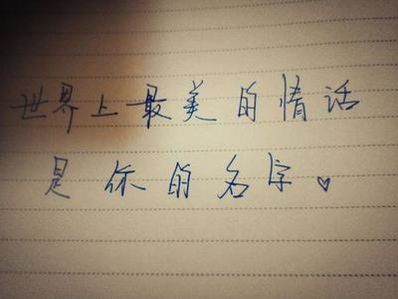 世界上最美的情话
是你的名字。♥